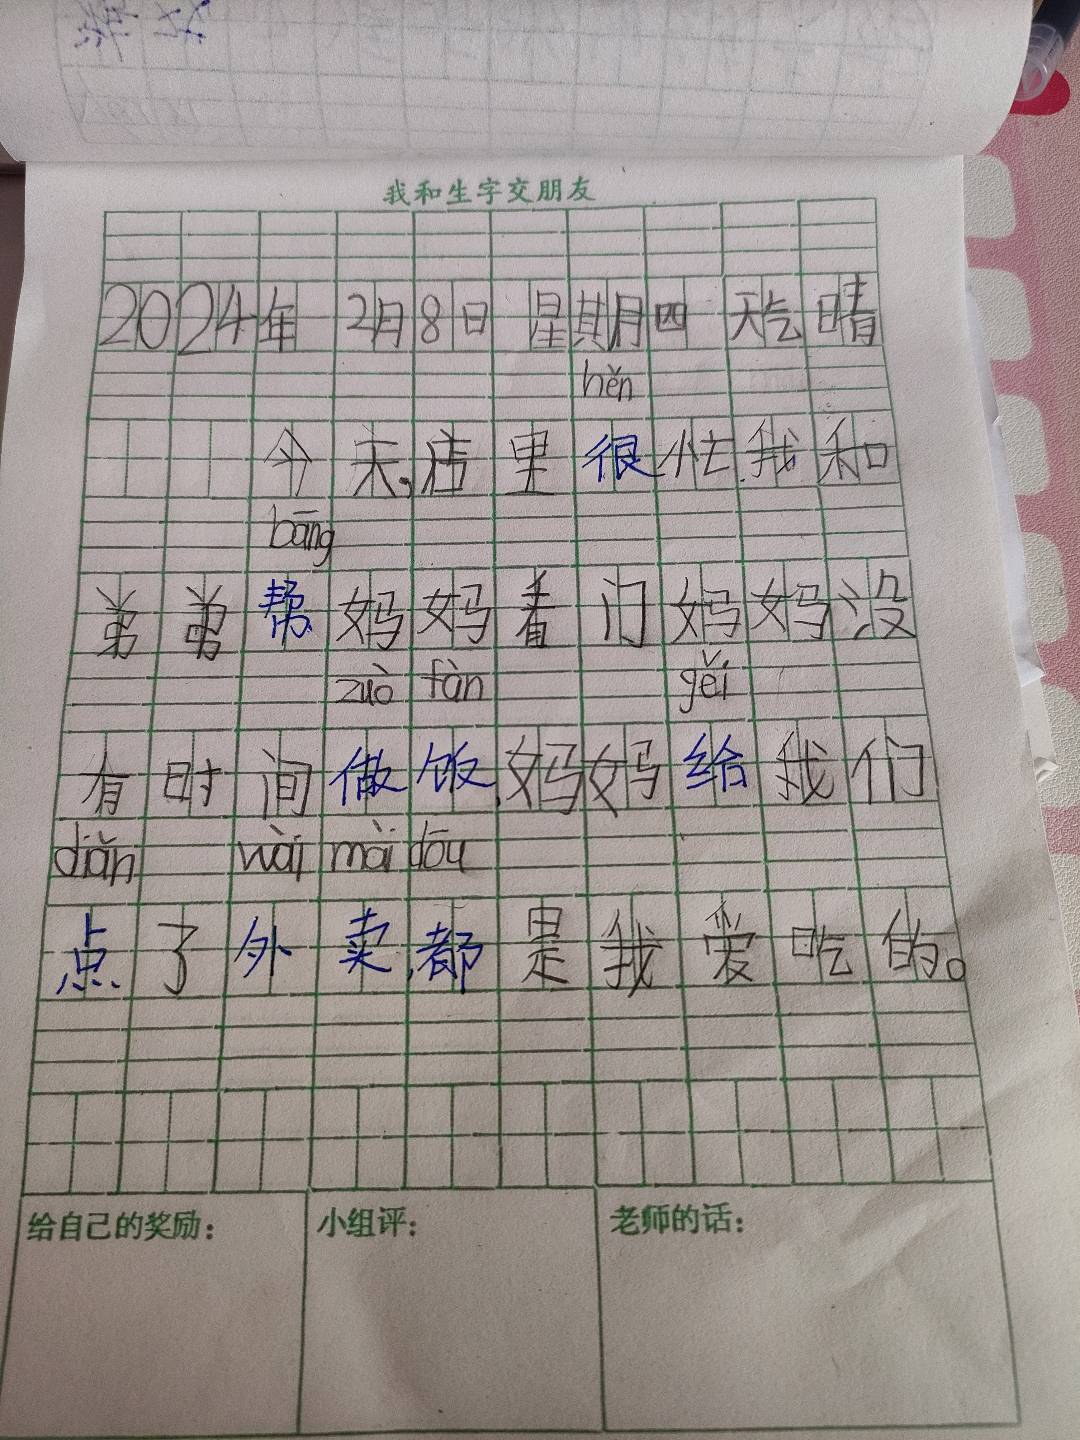 我和生字交朋友
2024年 2月8日 星期四 天气晴
hěn
今天,店里很忙,我和
bāng
弟弟帮妈妈看门妈妈没
zuò fàn gěi
有时间做饭,妈妈给我们
diǎn wài mài dōu
点了外卖,都是我爱吃的。
给自己的奖励: 小组评: 老师的话: